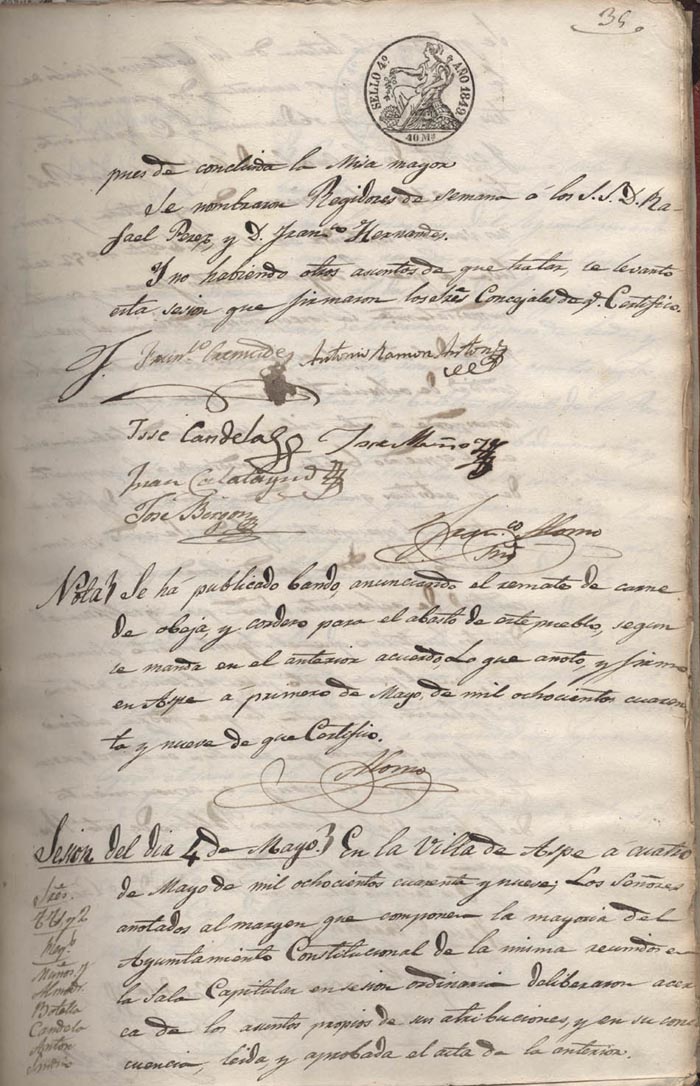 36.
SELLO 4º AÑO 1849
40 Ms
pues de concluida la Misa mayor
Se nombraron Regidores de semana á los S.S. D. Ra-
fael Perez, y D. Franco Hernandes.
Y no habiendo otros asuntos de que tratar, se levantó
esta sesion que firmaron los Sres Concejales de q. Certifico.
Antonio Ramon Anton
José Candela Jose Muñoz
Juan Calatayud
José
Franco Alonso
Srio
Nota Se há publicado bando, anunciando el remate de carne
de obeja, y cordero para el abasto de este pueblo, segun
se manda en el anterior acuerdo. Lo que anoto, y firmo
en Aspe a primero de Mayo, de mil ochocientos cuaren
ta y nueve de que Certifico.
Alonso
Sesion del dia 4 de Mayo. En la Villa de Aspe a cuatro
de Mayo de mil ochocientos cuarenta y nueve; Los Señores
anotados al margen que componen la mayoria del
Ayuntamiento Constitucional de la misma reunidos en
la Sala Capitular en sesion ordinaria deliberaron acer
ca de los asuntos propios de sus atribuciones, y en su conse
cuencia, leida, y aprobada el acta de la anterior.
Sres.
Muñoz, y
Almodr.
Botella
Candela
Anton